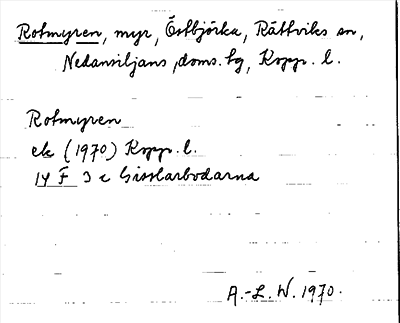 Rotmyren, myr, Östbjörka, Rättviks sn,
Nedansiljans doms. tg, Kopp. l.
Rotmyren
ek (1970) Kopp. l.
14 F 3 c Gisslarbodarna
A.-L. W. 1970.